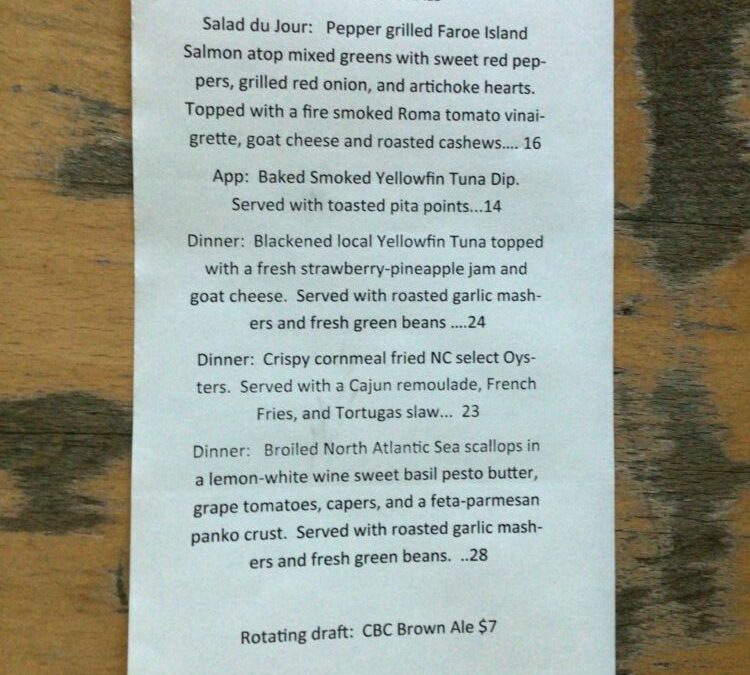 Salad du Jour: Pepper grilled Faroe Island
Salmon atop mixed greens with sweet red pep-
pers, grilled red onion, and artichoke hearts.
Topped with a fire smoked Roma tomato vinai-
grette, goat cheese and roasted cashews.... 16
App: Baked Smoked Yellowfin Tuna Dip.
Served with toasted pita points...14
Dinner: Blackened local Yellowfin Tuna topped
with a fresh strawberry-pineapple jam and
goat cheese. Served with roasted garlic mash-
ers and fresh green beans ....24
Dinner: Crispy cornmeal fried NC select Oys-
ters. Served with a Cajun remoulade, French
Fries, and Tortugas slaw... 23
Dinner: Broiled North Atlantic Sea scallops in
a lemon-white wine sweet basil pesto butter,
grape tomatoes, capers, and a feta-parmesan
panko crust. Served with roasted garlic mash-
ers and fresh green beans. ..28
Rotating draft: CBC Brown Ale $7